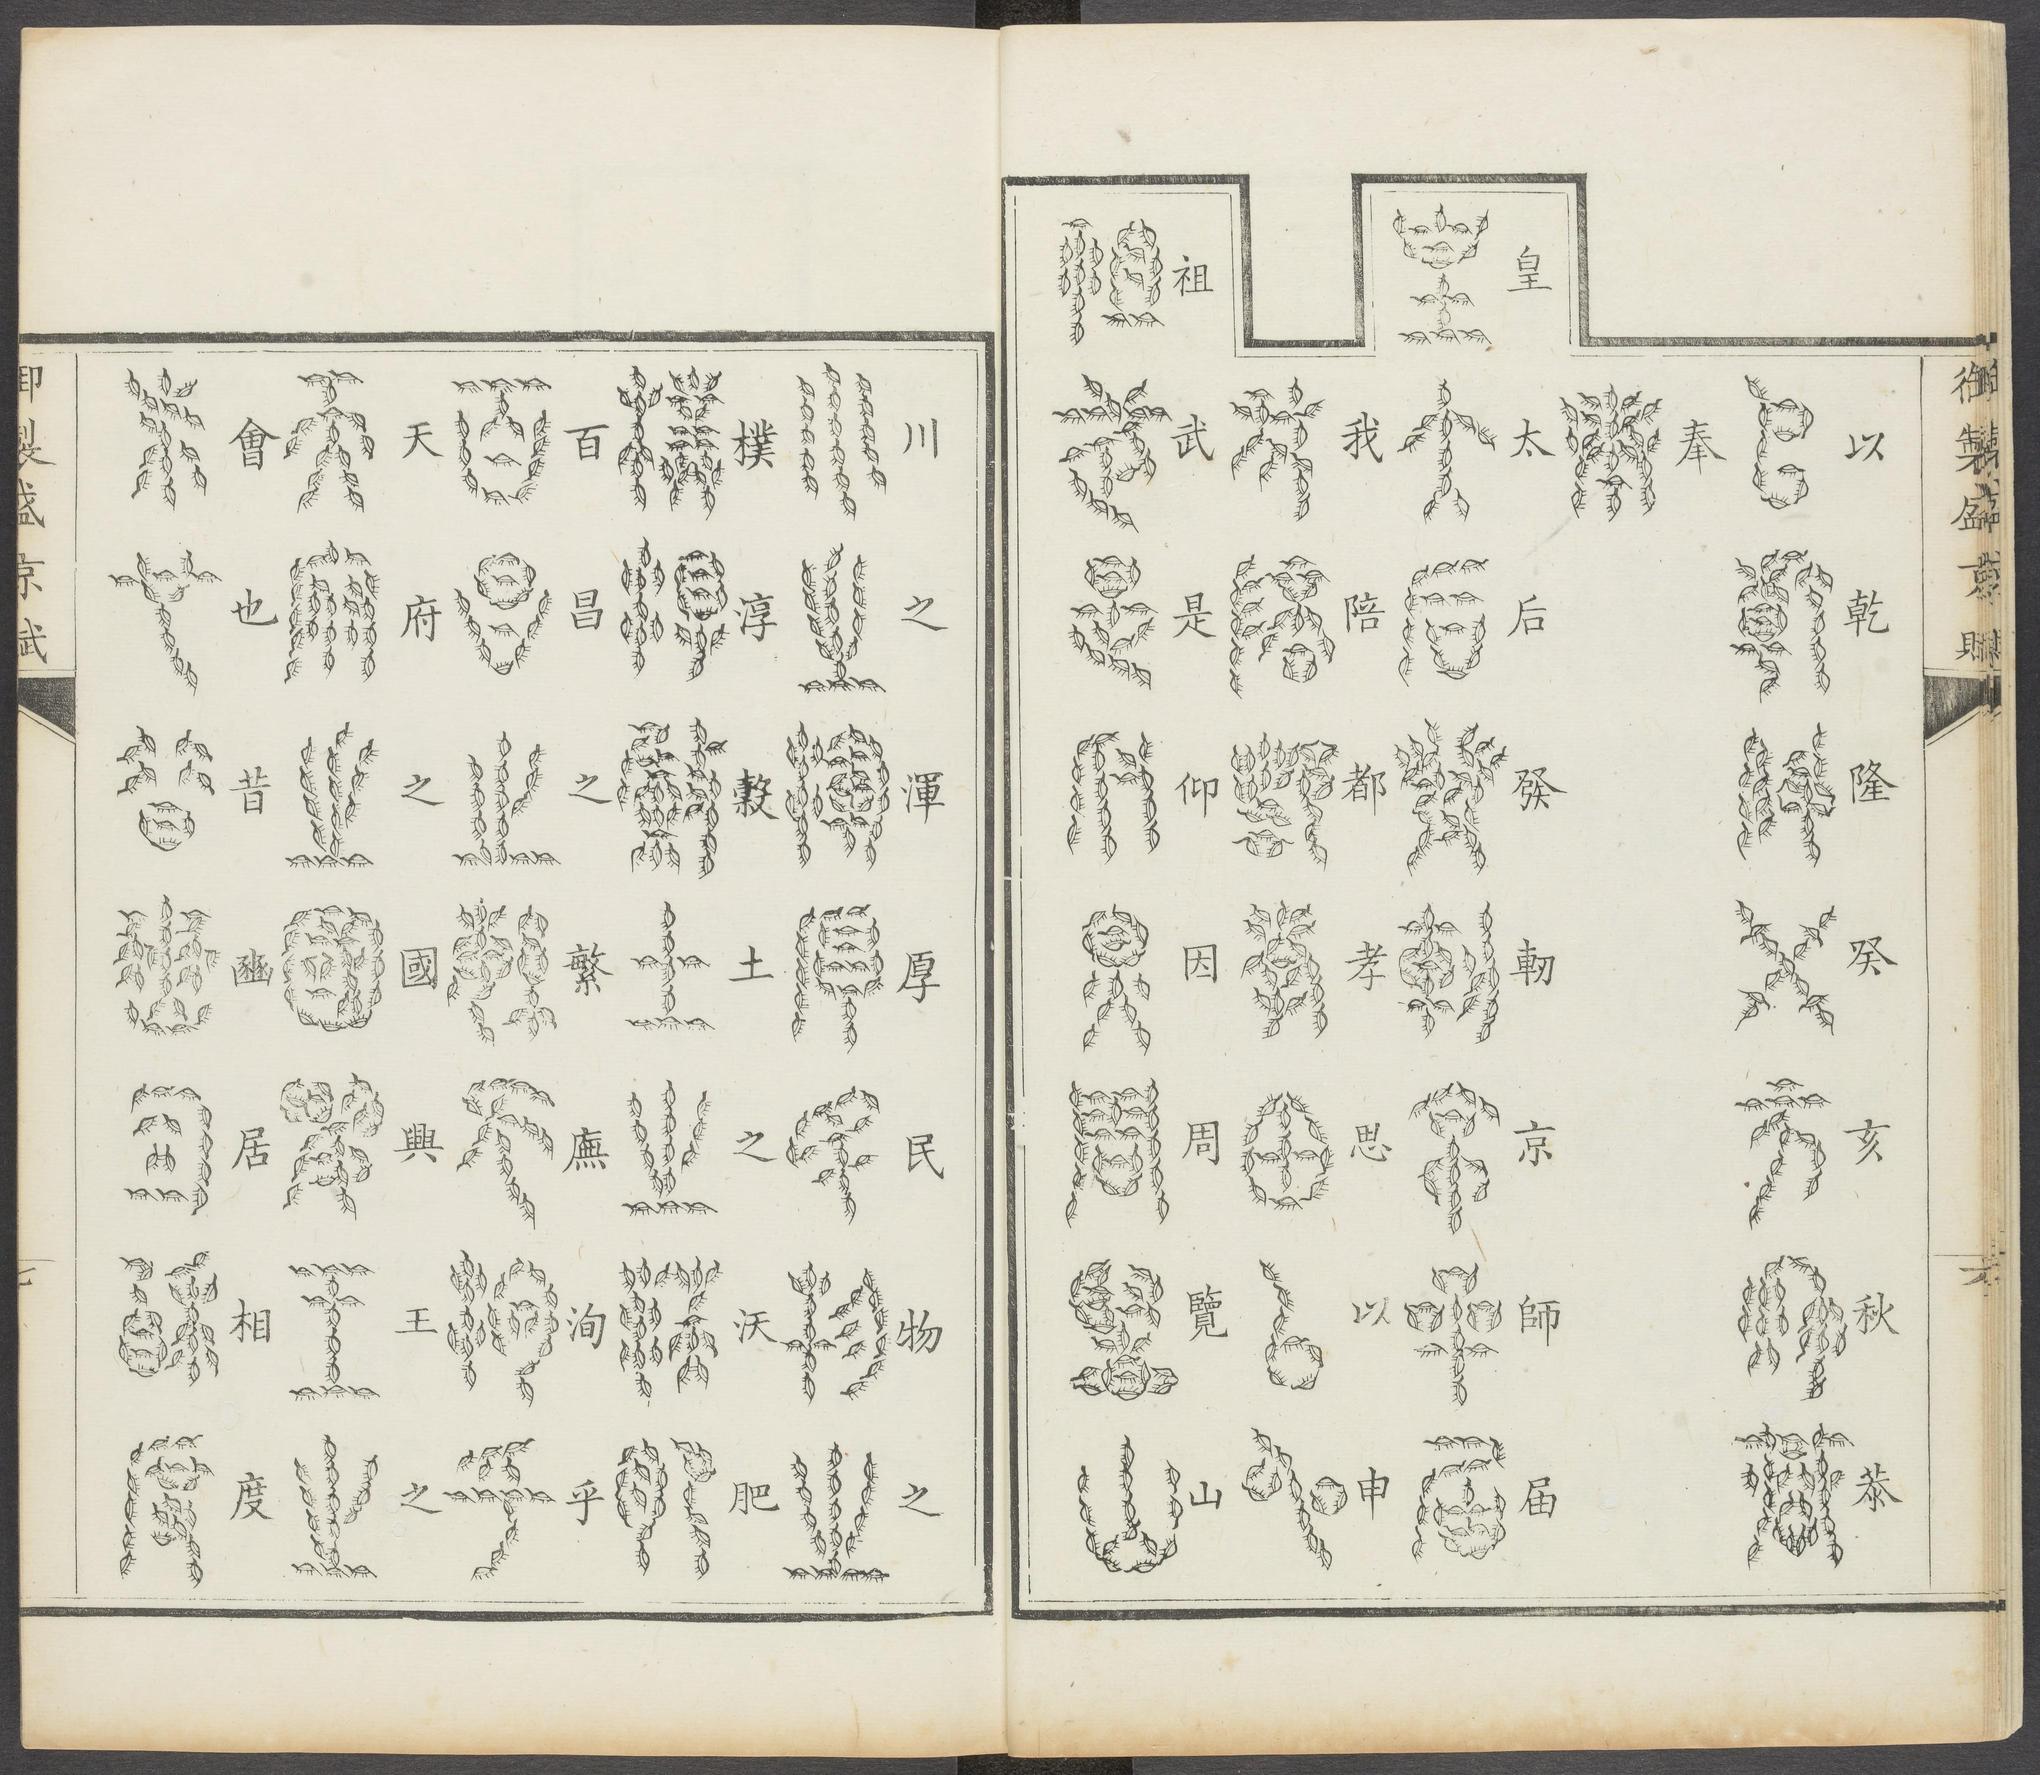 御製盛京賦
以乾隆癸亥秋恭
奉
皇太后發軔京師届
我陪都孝思以申
祖武是仰因周覽山
川之渾厚民物之
樸淳穀土之沃肥
百昌之繁廡洵乎
天府之國興王之
會也昔豳居相度
御製盛京賦
七